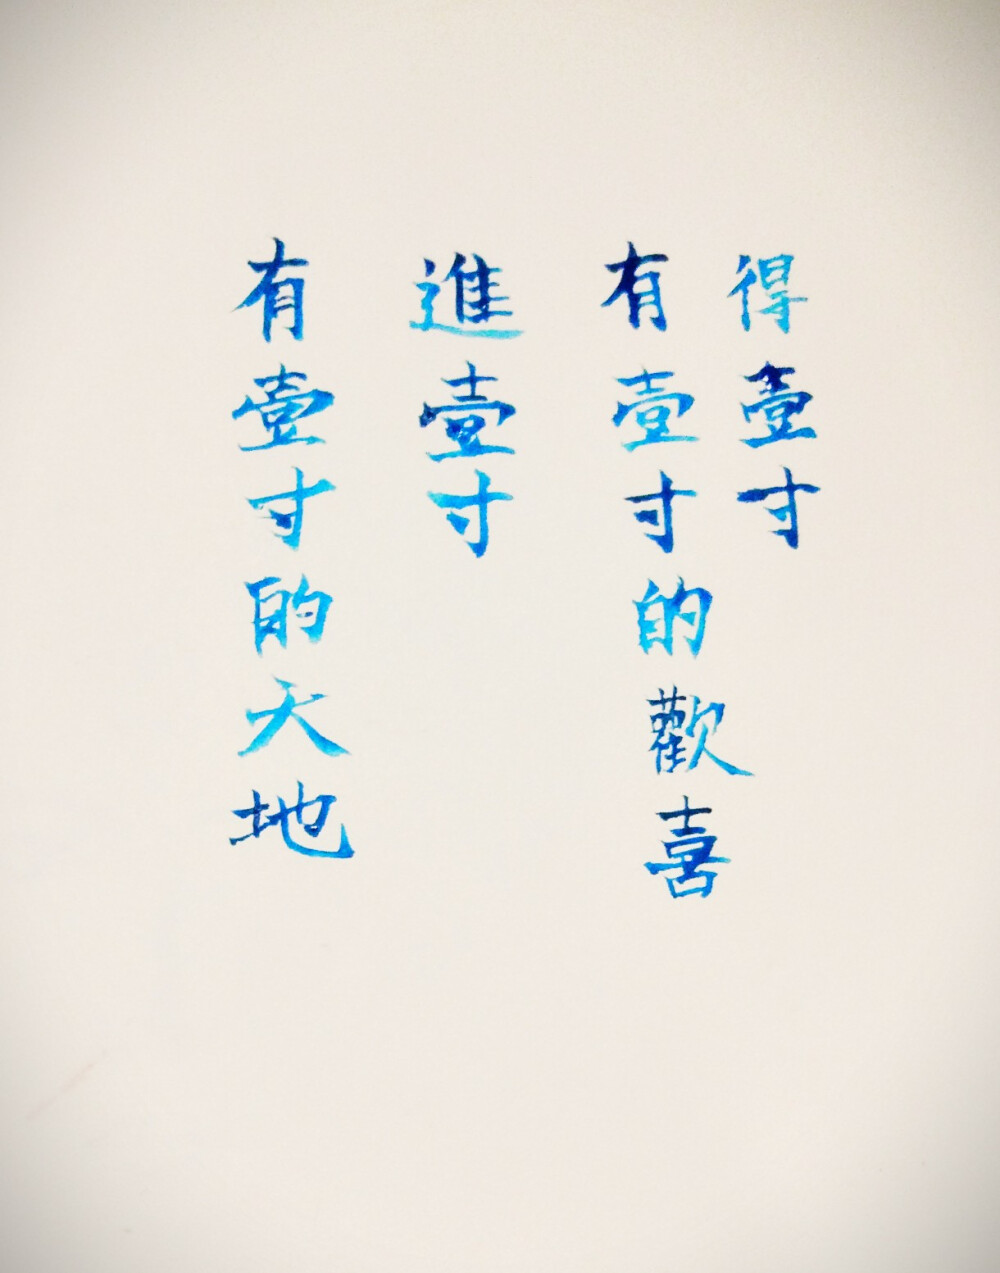 得壹寸
有壹寸的歡喜
進壹寸
有壹寸的天地